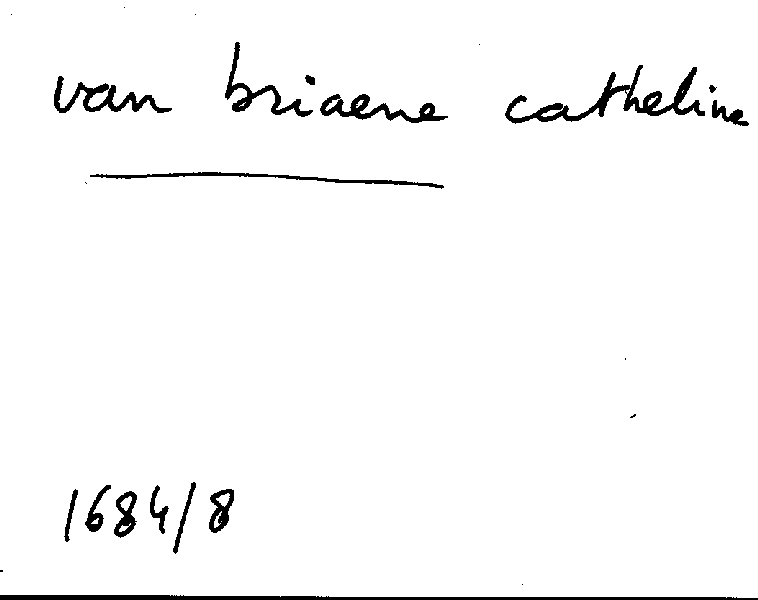 van briaene catheline
1684/8